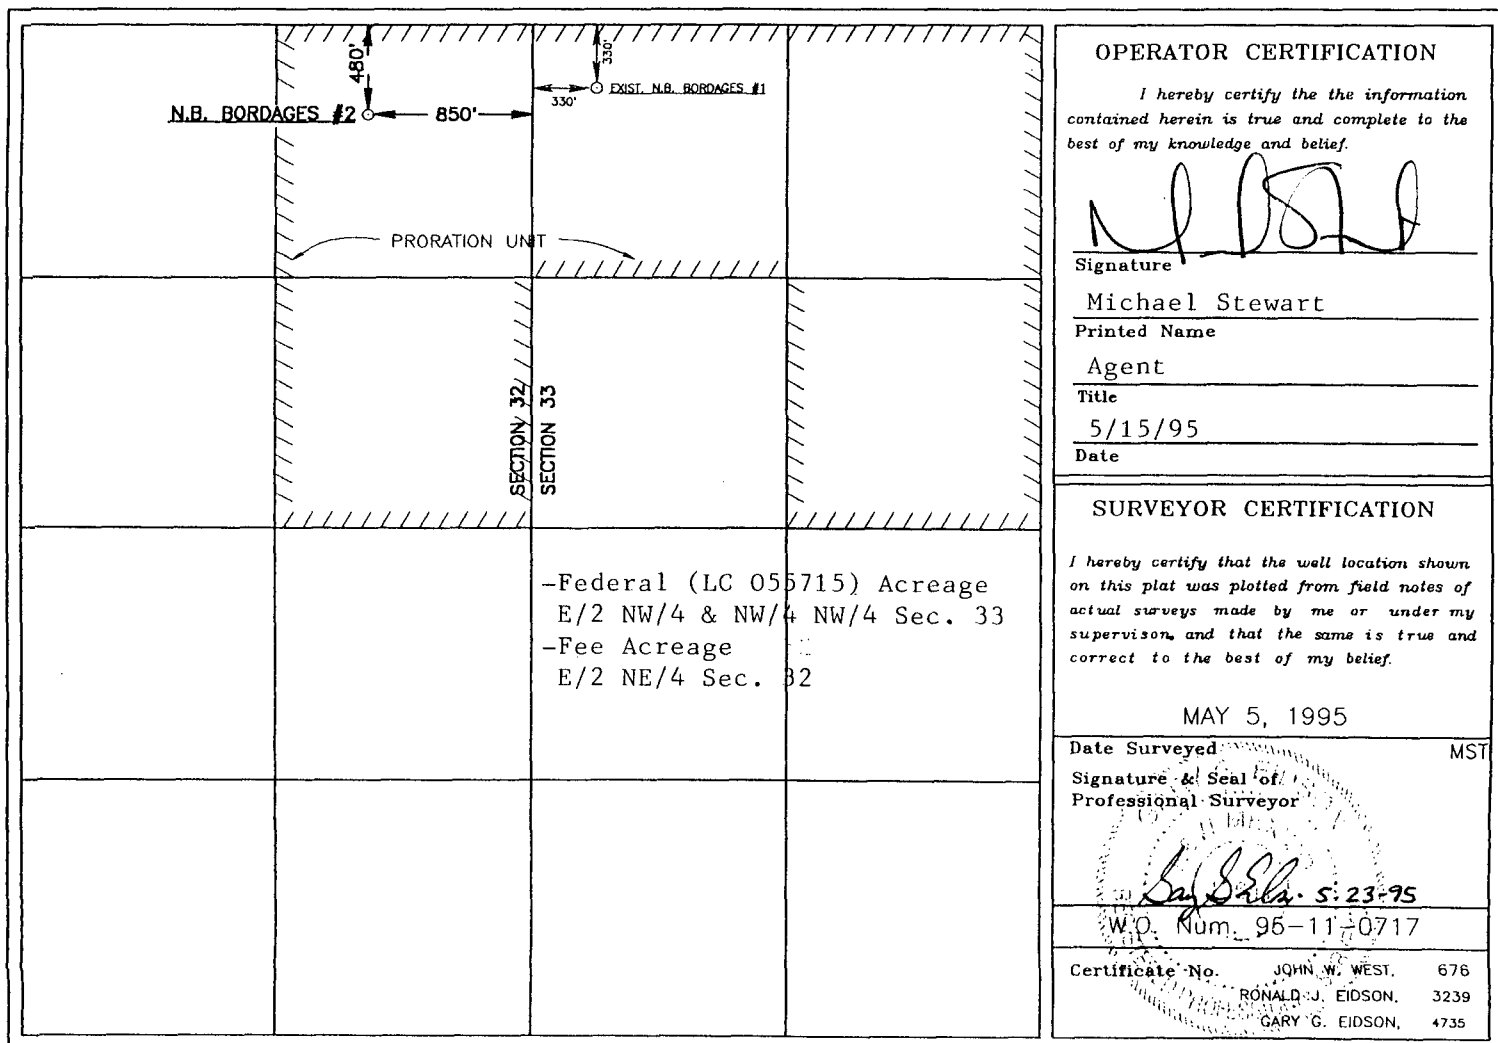 480'
330'
N.B. BORDAGES #2
850'
330'
EXIST. N.B. BORDAGES #1
PRORATION UNIT
SECTION 32
SECTION 33
-Federal (LC 055715) Acreage
E/2 NW/4 & NW/4 NW/4 Sec. 33
-Fee Acreage
E/2 NE/4 Sec. 32
OPERATOR CERTIFICATION
I hereby certify the the information
contained herein is true and complete to the
best of my knowledge and belief.
Signature
Michael Stewart
Printed Name
Agent
Title
5/15/95
Date
SURVEYOR CERTIFICATION
I hereby certify that the well location shown
on this plat was plotted from field notes of
actual surveys made by me or under my
supervison, and that the same is true and
correct to the best of my belief.
MAY 5, 1995
Date Surveyed MST
Signature & Seal of
Professional Surveyor
5-23-95
W.O. Num. 95-11-0717
Certificate No. JOHN W. WEST, 676
RONALD J. EIDSON, 3239
GARY G. EIDSON, 4735